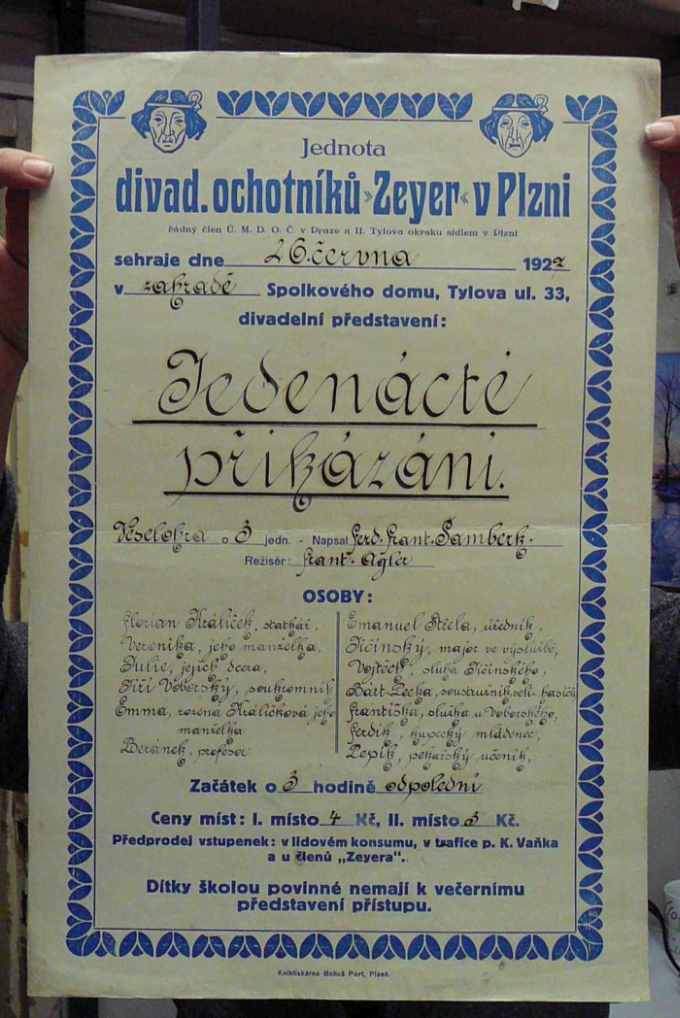 Jednota
divad. ochotníků „Zeyer“ v Plzni
řádný člen Ú. M. D. O. Č. v Praze a II. Tylova okrsku sídlem v Plzni
sehraje dne 26. června 1927
v zahradě Spolkového domu, Tylova ul. 33,
divadelní představení:
Jedenácté
přikázání.
Veselohra o 3 jedn. - Napsal Ferd. Frant. Šamberk.
Režisér: Frant. Agler
OSOBY:
Florian Králíček, statkář,
Veronika, jeho manželka,
Julie, jejich dcera,
Jiří Voborský, soukromník
Emma, rozená Králíčková jeho
manželka
Beránek, profesor
Emanuel Střela, úředník,
Jičínský, major ve výslužbě,
Vojtěch, sluha Jičínského,
Bárt. Pecka, soustružník, vel. hasičů
Františka, služka u Voborského,
Ferdík, kupecký mládenec,
Pepík, pekařský učeník,
Začátek o 3 hodině odpolední
Ceny míst: I. místo 4 Kč, II. místo 3 Kč.
Předprodej vstupenek: v lidovém konsumu, v trafice p. K. Vaňka
a u členů „Zeyera“.
Dítky školou povinné nemají k večernímu
představení přístupu.
Knihtiskárna Bohuš Port, Plzeň.